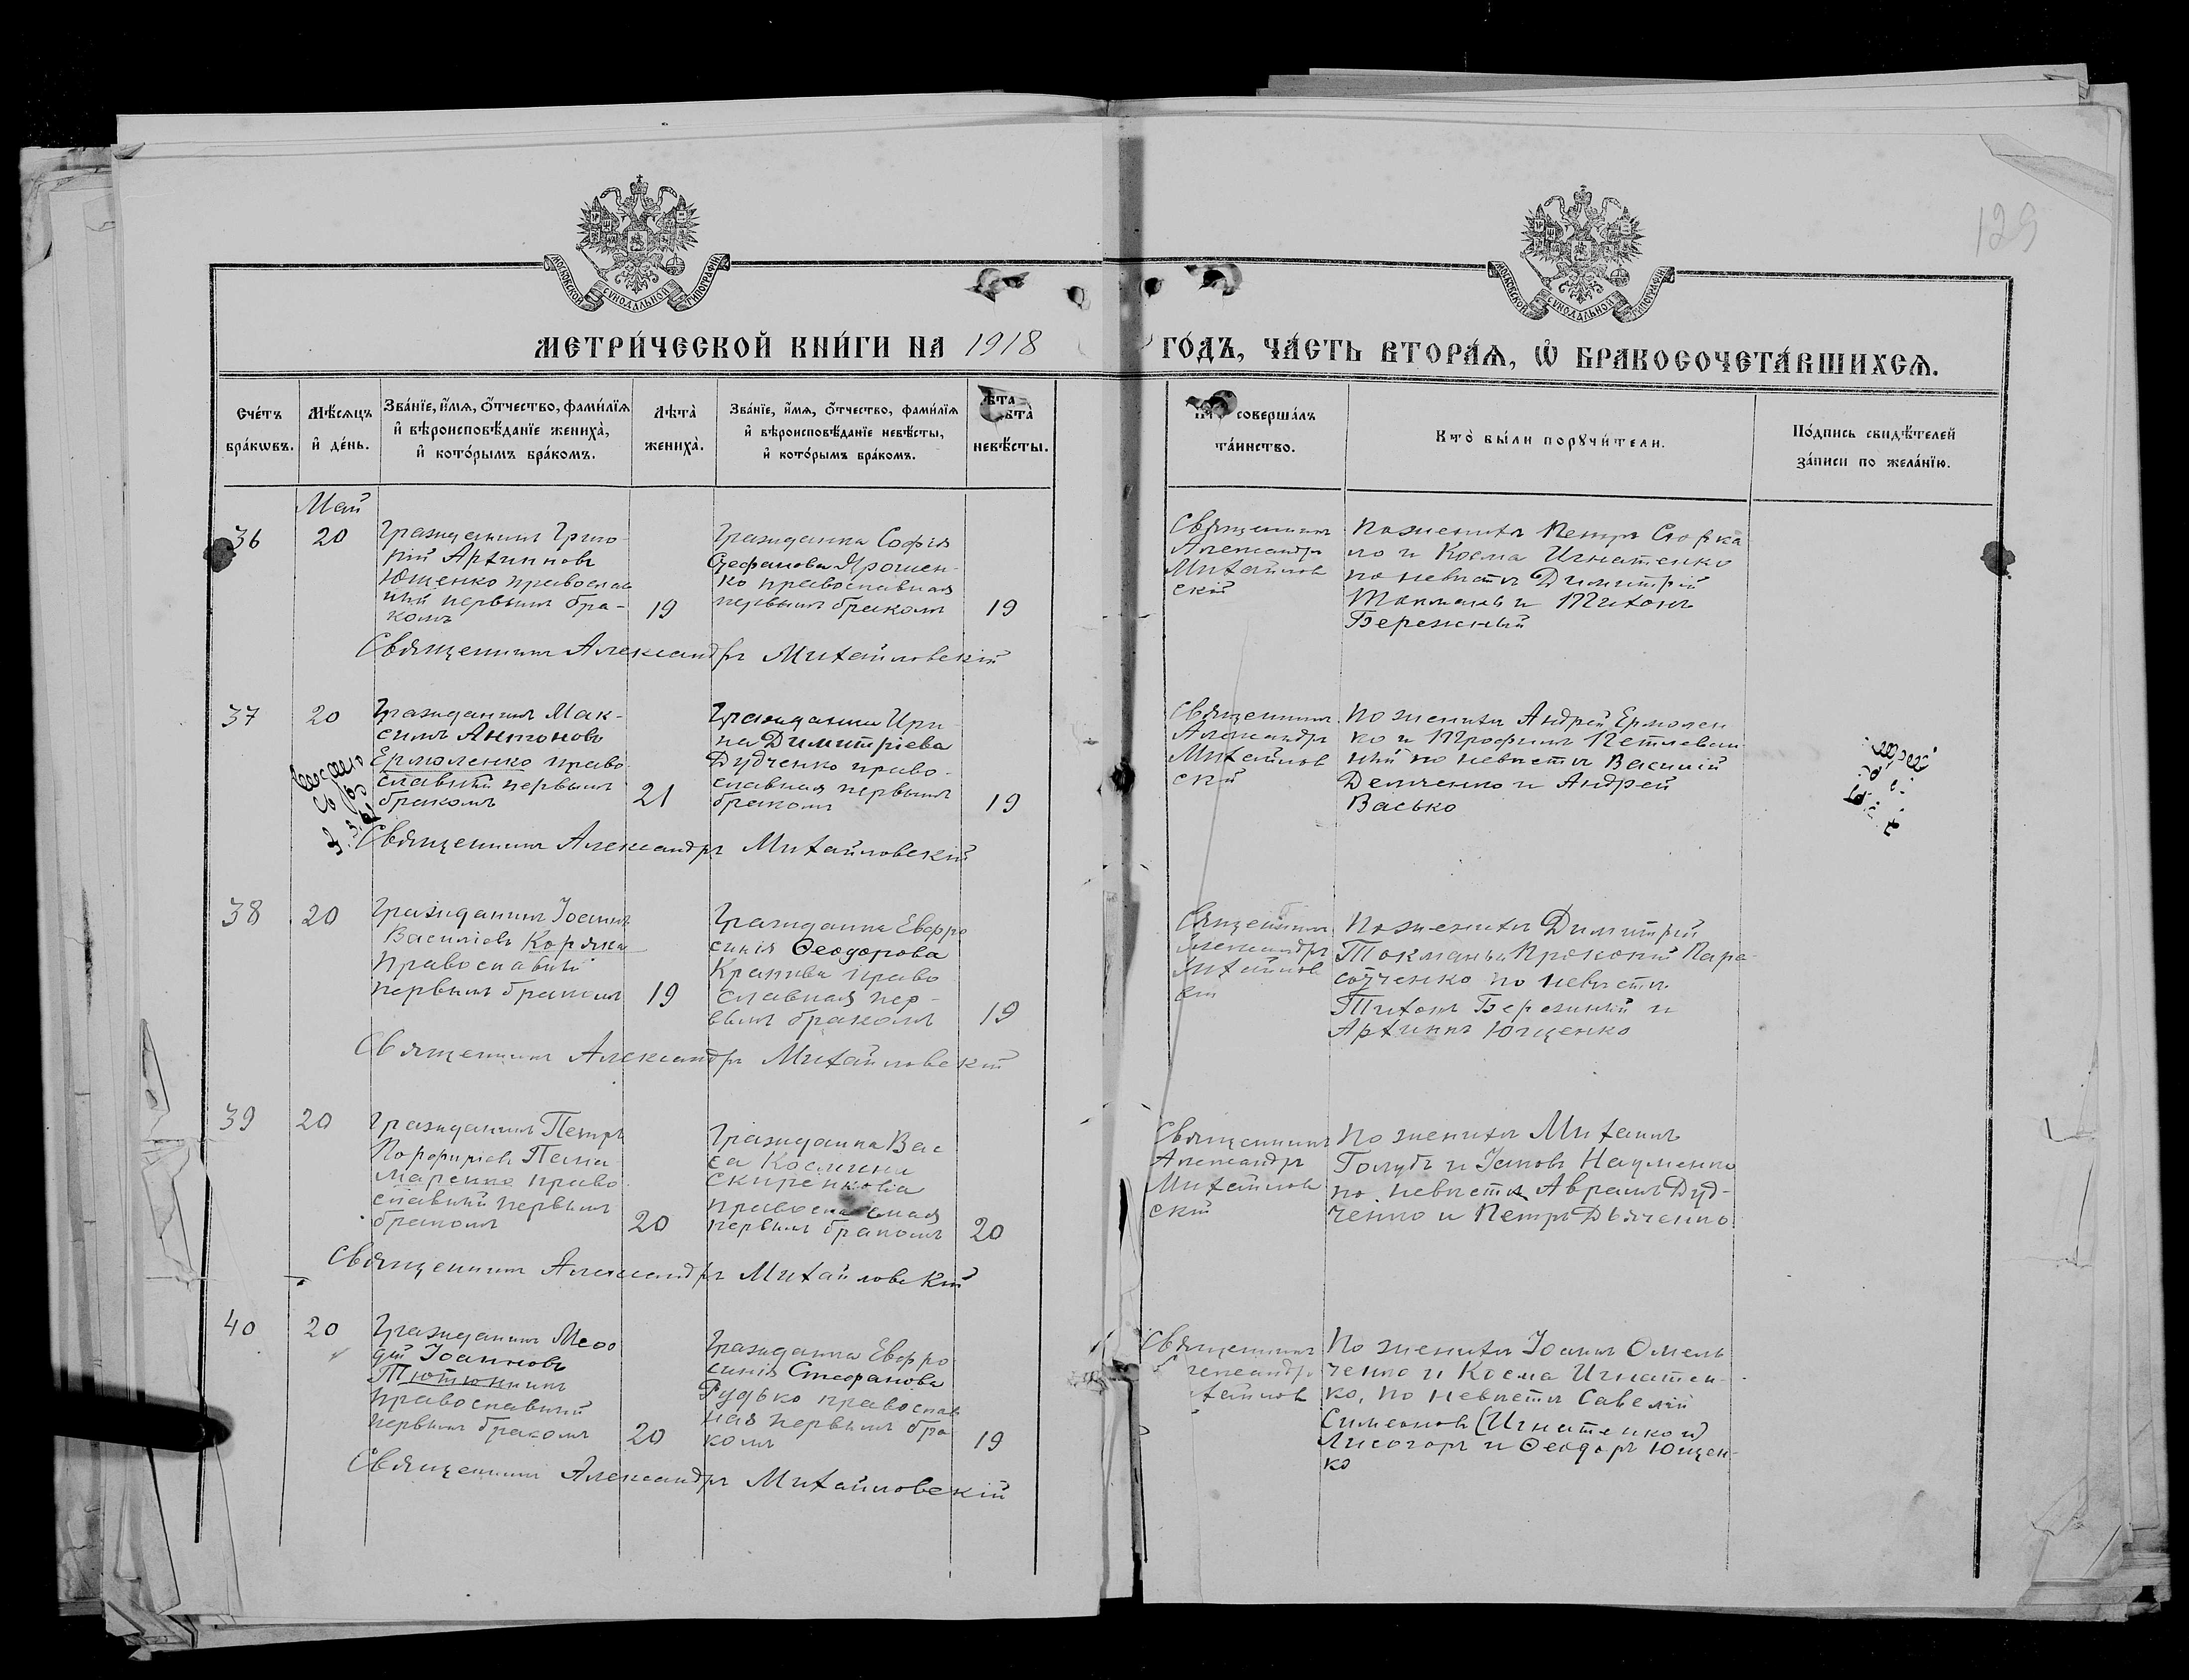 129
МОСКОВСКОЙ СУНОДАЛЬНОЙ ТИПОГРАФІИ
МОСКОВСКОЙ СУНОДАЛЬНОЙ ТИПОГРАФІИ
МЕТРИ́ЧЕСКОЙ КНИ́ГИ НА 1918 ГО́ДЪ, ЧА́СТЬ ВТОРА́Ѧ, Ѡ҆ БРАКОСОЧЕТА́ВШИХСѦ.
Сче́тъ бра́кѡвъ.
Мѣ́сѧцъ и҆ де́нь.
Зва́нїе, и҆́мѧ, ѻ҆́тчество, фами́лїѧ
и҆ вѣроисповѣ́данїе жениха̀,
и҆ кото́рымъ бра́комъ.
Лѣ́та̀
жениха̀.
Зва́нїе, и҆́мѧ, ѻ҆́тчество, фами́лїѧ
и҆ вѣроисповѣ́данїе невѣ́сты,
и҆ кото́рымъ бра́комъ.
Лѣ́та̀
невѣ́сты.
соверша́лъ
та́инство.
Кто̀ бы́ли порꙋчи́тели.
По́дпись свидѣ́телей
за́писи по жела́нїю.
Май
36
20
Гражданинъ Григо-
рій Архиппов
Ющенко православ
ный первымъ бра-
комъ
19
Гражданка Софія
Стефанова Ярошен-
ко православная
первымъ бракомъ
19
Священникъ
Александръ
Михайлов
скій
По женихѣ Петръ
и Косма Игнатенко
по невѣстѣ Димитрій
Токмань и Тихонъ
Бережный
Священникъ Александръ Михайловскій
37
20
Гражданинъ Мак-
симъ Антоновъ
Ермоленко право
славный первымъ
бракомъ
21
Гражданка Ири
на Димитріева
Дудченко право-
славная первымъ
бракомъ
19
Священникъ
Александръ
Михайлов
скій
По женихѣ Андрей Ермолен
ко и Трофимъ
по невѣстѣ Василій
Демченко и Андрей
Васько
Священникъ Александръ Михайловскій
38
20
Гражданинъ Іоаннъ
Василіевъ Коряка
православный
первымъ бракомъ
19
Гражданка Евфро
синія Ѳеодорова
Крапива право
славная пер-
вымъ бракомъ
19
Священникъ
Александръ
Михайлов
скій
По женихѣ Димитрій
Токмань Прокопій
по невѣстѣ
Тихонъ Бережный и
Архиппъ Ющенко
Священникъ Александръ Михайловскій
39
20
Гражданинъ Петръ
Порфиріевъ Пана
маренко право
славный первымъ
бракомъ
20
Гражданка Вас
са Космина
православная
первымъ бракомъ
20
Священникъ
Александръ
Михайлов
скій
По женихѣ Михаилъ
Голубъ и Іаковъ Науменко
по невѣстѣ Авраамъ Дуд-
ченко и Петръ Дьяченко
Священникъ Александръ Михайловскій
40
20
Гражданинъ Меѳо
дій Іоанновъ
Тютюнникъ
православный
первымъ бракомъ
20
Гражданка Евфро
синія Стефанова
Рудько православ
ная первымъ бра
комъ
19
Священникъ
Александръ
Михайлов
По женихѣ Іоаннъ Омель
ченко и Косма Игнатен-
ко, по невѣстѣ Савелій
Симеонов (Игнатенко и)
Лисогоръ и Ѳеодоръ Ющен-
ко
Священникъ Александръ Михайловскій